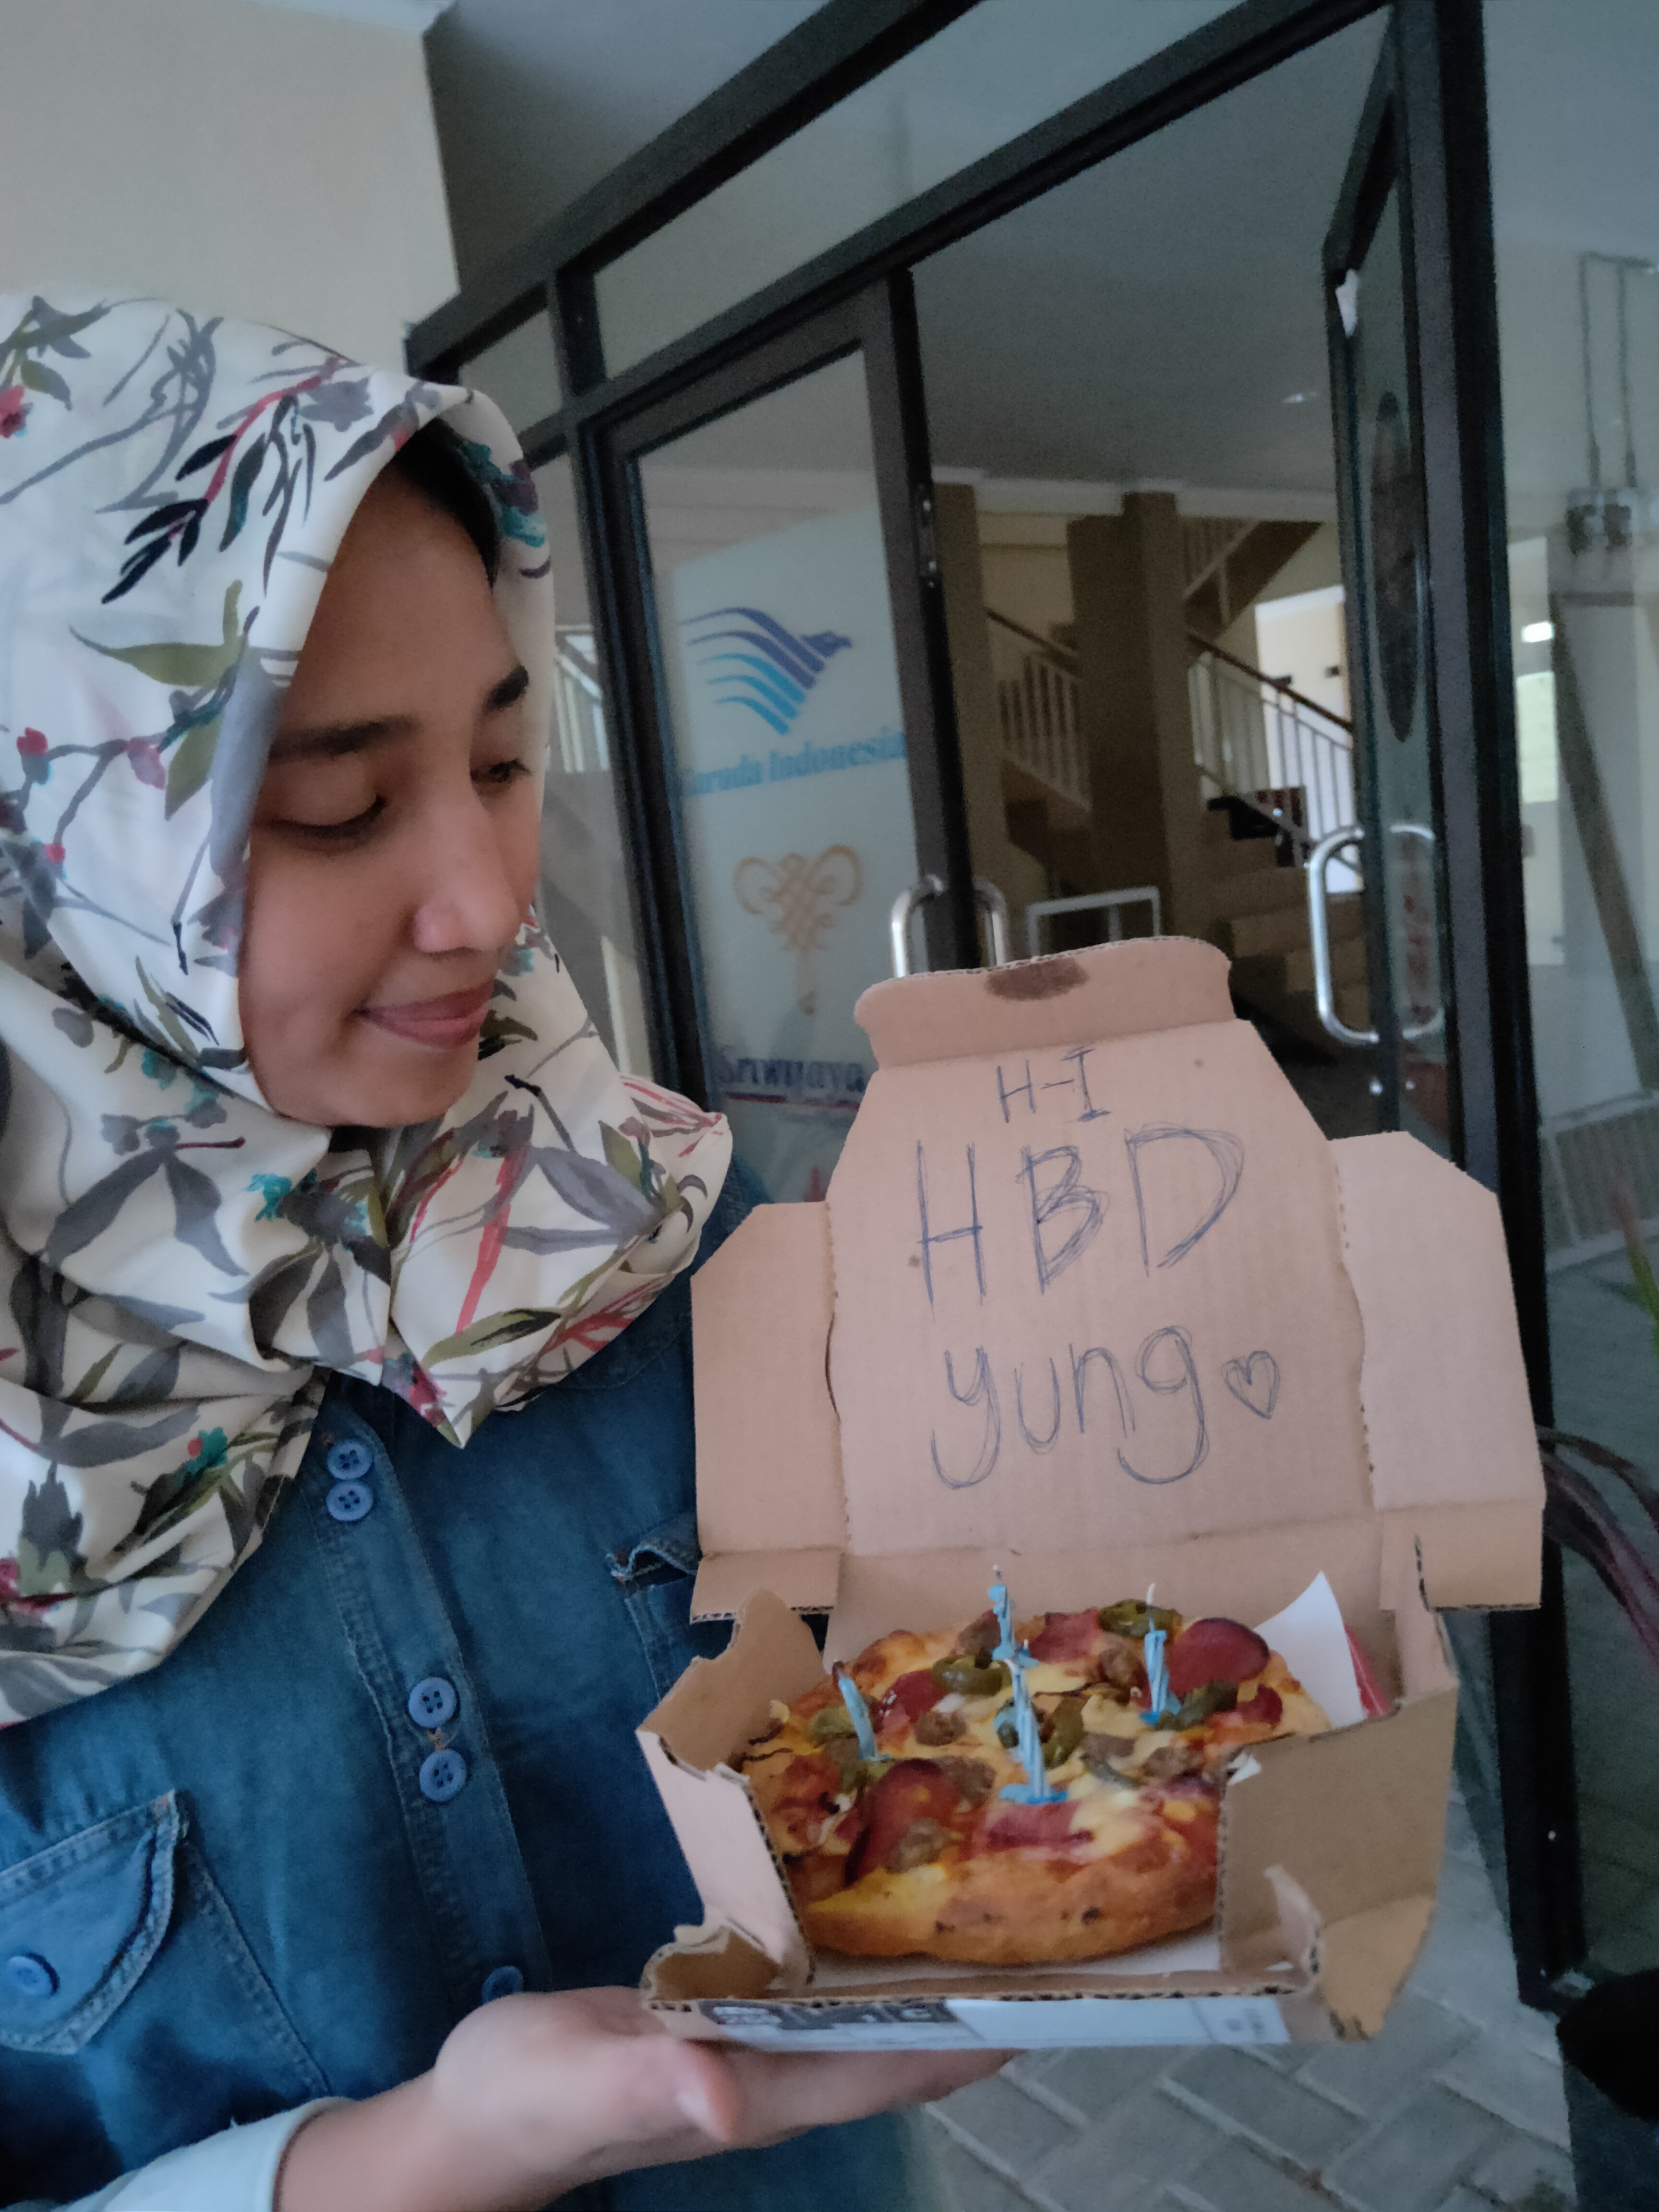 Garuda Indonesia
Sriwijaya
H-1
HBD
yung